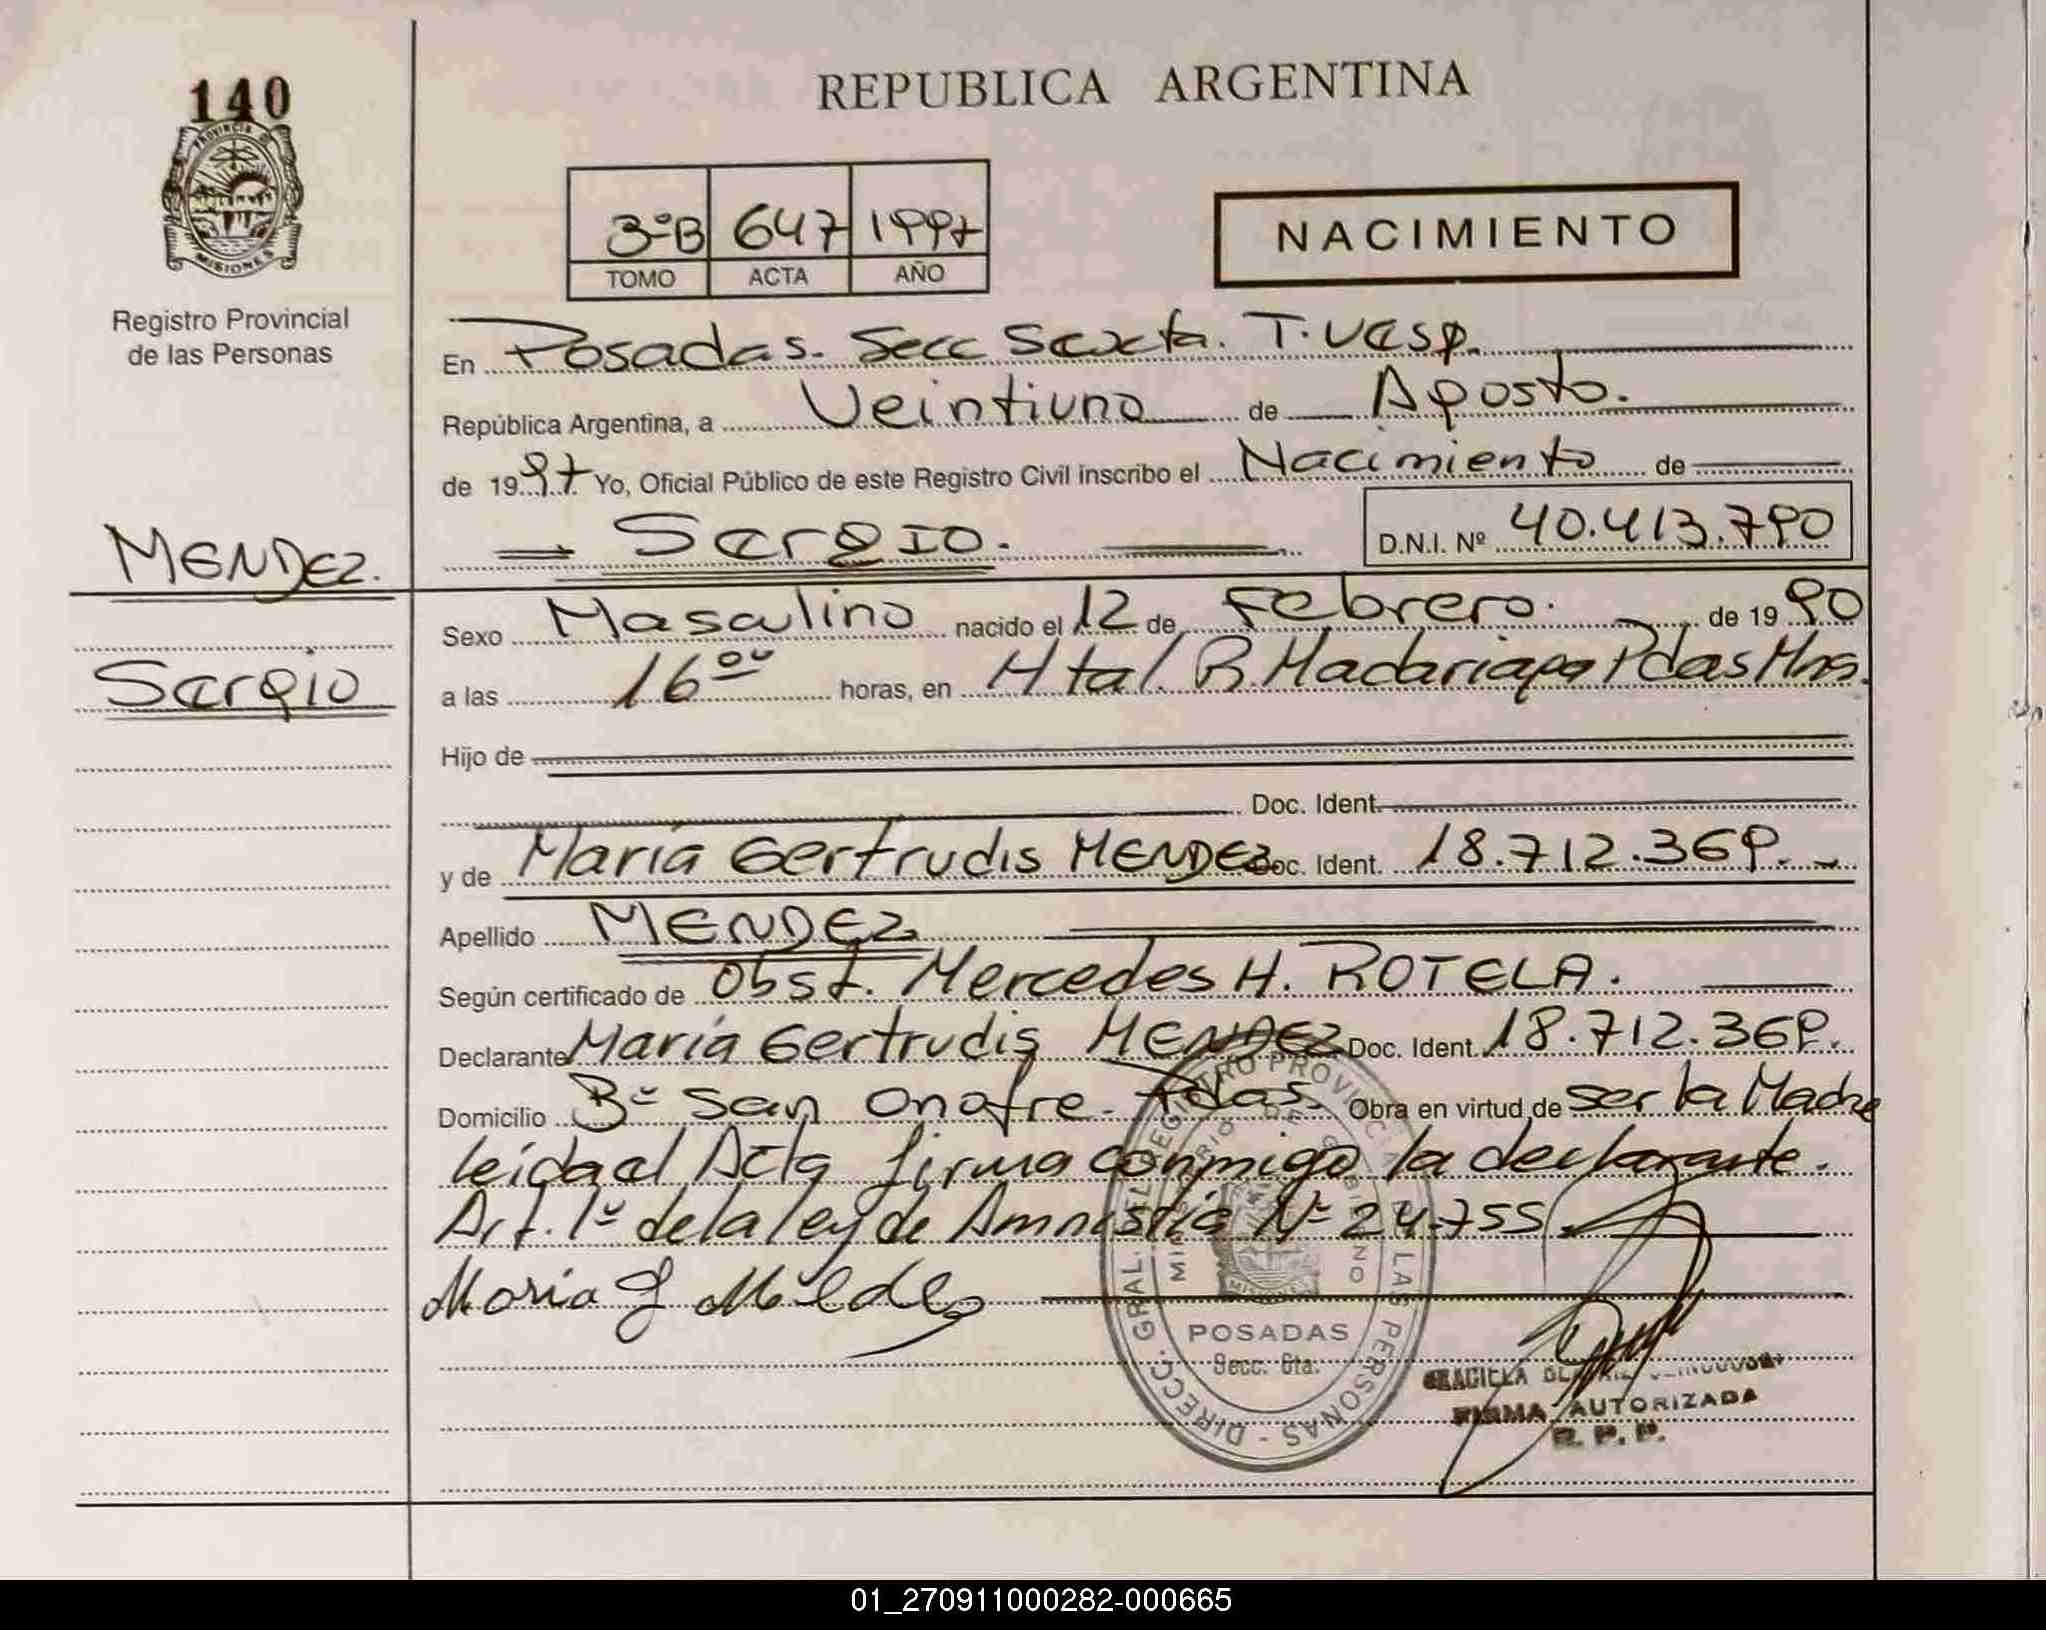 140
REPUBLICA ARGENTINA
PROVINCIA DE
MISIONES
Registro Provincial
de las Personas
3ºB 647 1997
TOMO ACTA AÑO
NACIMIENTO
En Posadas. Secc Sexta. T.
República Argentina, a Veintiuno de Agosto.
de 1997 Yo, Oficial Público de este Registro Civil inscribo el Nacimiento de
Sergio. D.N.I. Nº 40.413.790
MENDEZ.
Sergio
Sexo Masculino nacido el 12 de Febrero. de 1990
a las 16ºº horas, en Htal. R. Madariaga Pdas Mns.
Hijo de
Doc. Ident.
y de María Gertrudis MENDEZ Doc. Ident. 18.712.369.
Apellido MENDEZ
Según certificado de Obst. Mercedes H. ROTELA.
Declarante María Gertrudis MENDEZ Doc. Ident. 18.712.369.
Domicilio Bº San Onofre. Pdas. Obra en virtud de ser la Madre
leida el Acta firma conmigo la declarante.
Art. 1º de la ley de Amnistía Nº 24.755.
Maria G Mendez
DIRECC. GRAL. DEL REGISTRO PROVINCIAL DE LAS PERSONAS
MINISTERIO DE GOBIERNO
MISIONES
POSADAS
Secc. 6ta.
FIRMA AUTORIZADA
R. P. P.
01_270911000282-000665